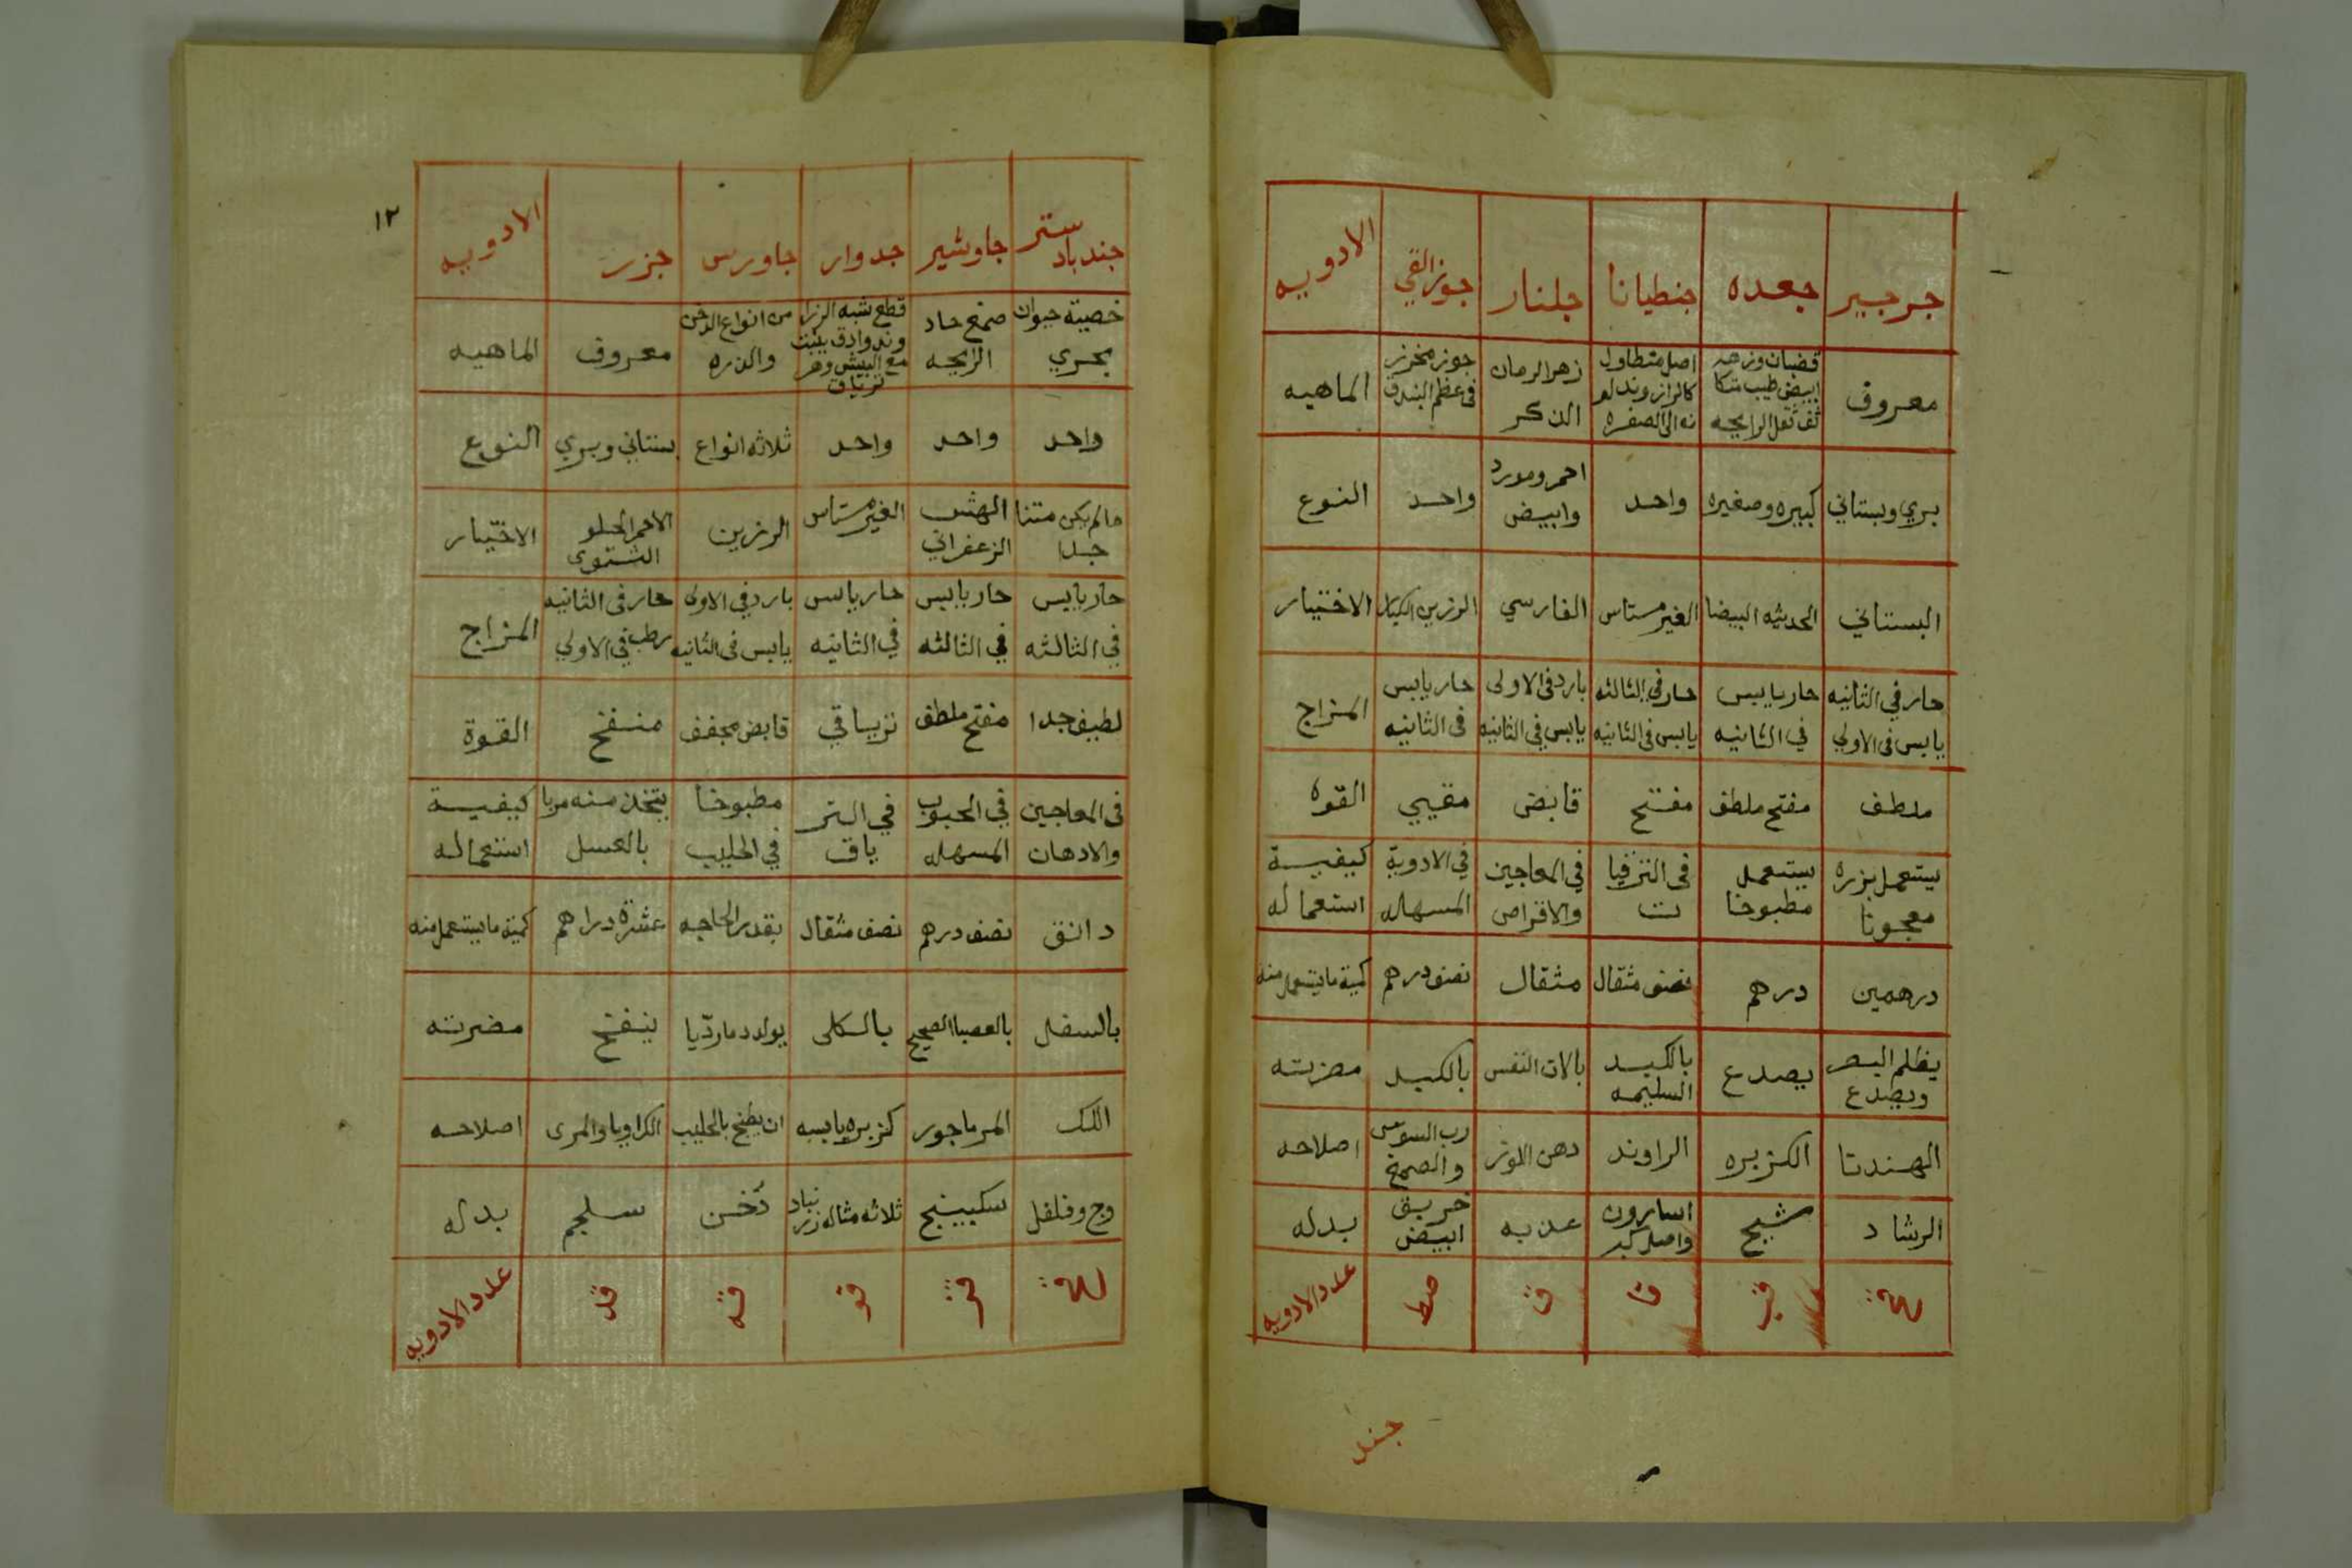 جرجير جعده جنطيانا جلنار جوز القي الادويه
معروف
قضبان وزهر
ابيض طيب
ثقل الرايحه
اصل متطاول
كالزراوند
الى الصفره
زهر الرمان
الذكر
جوز مخرز
فى عظم البندق
الماهيه
بري وبستاني كبيره وصغيره واحد
احمر ومورد
وابيض
واحد النوع
البستاني الحديثه البيضا الغير مستاس الفارسي الرزين الاختيار
حار في الثانيه
يابس فى الاولي
حار يابس
في الثانيه
حار في الثالثه
يابس فى الثانيه
بارد فى الاولى
يابس فى الثانيه
حار يابس
فى الثانيه
المزاج
ملطف مفتح ملطف مفتح قابض مقيي القوه
يستعمل بزره
معجونا
يستعمل
مطبوخا
فى الترقيا
ت
في المعاجين
والاقراص
في الادوية
المسهله
كيفيـة
استعماله
درهمين درهم نصف مثقال مثقال نصف درهم كمية ما يستعمل منه
يظلم البصر
ويصدع
يصدع
بالكبد
السليمه
بالات النفس بالكبد مضرته
الهندبا الكزبره الراوند دهن اللوز
رب السوس
والصمغ
اصلاحه
الرشاد شيح
اسارون
واصل كبر
عذبه
خربق
ابيض
بدله
قب قا ق صط عدد الادويه
جند
١٢
جندباد
ستر
جاوشير جدوار جاورس جزر الادويه
خصية حيوان
بحري
صمغ حاد
الرايحه
قطع شبه الزرا
وند وادق ينبت
مع البيش وهو
ترياق
من انواع الدخن
والذره
معروف الماهيه
واحد واحد واحد ثلاثه انواع بستاني وبري النوع
مالم يكن متنا
جدا
الهش
الزعفراني
الغير مستاس الرزين
الاحمر الحلو
الشتوى
الاختيار
حار يابس
في الثالثه
حار يابس
في الثالثه
حار يابس
في الثانيه
بارد في الاولى
يابس فى الثانيه
حار فى الثانيه
رطب في الاولي
المزاج
لطيف جدا مفتح ملطف ترياقي قابض مجفف منفخ القوة
فى المعاجين
والادهان
في الحبوب
المسهله
في التر
ياق
مطبوخا
في الحليب
يتخذ منه مربا
بالعسل
كيفيـة
استعماله
دانق نصف درهم نصف مثقال بقدر الحاجه عشرة دراهم كمية ما يستعمل منه
بالسفل بالعصب الصحيح بالكلى يولد دما رديا ينفخ مضرته
اللك المرماجور كزبره يابسه ان يطبخ بالحليب الكراويا والمرى اصلاحه
وج وفلفل سكبينج ثلاثه مثاله زرنباد دخن سلجم بدله
قز قو قه قد عدد الادويه